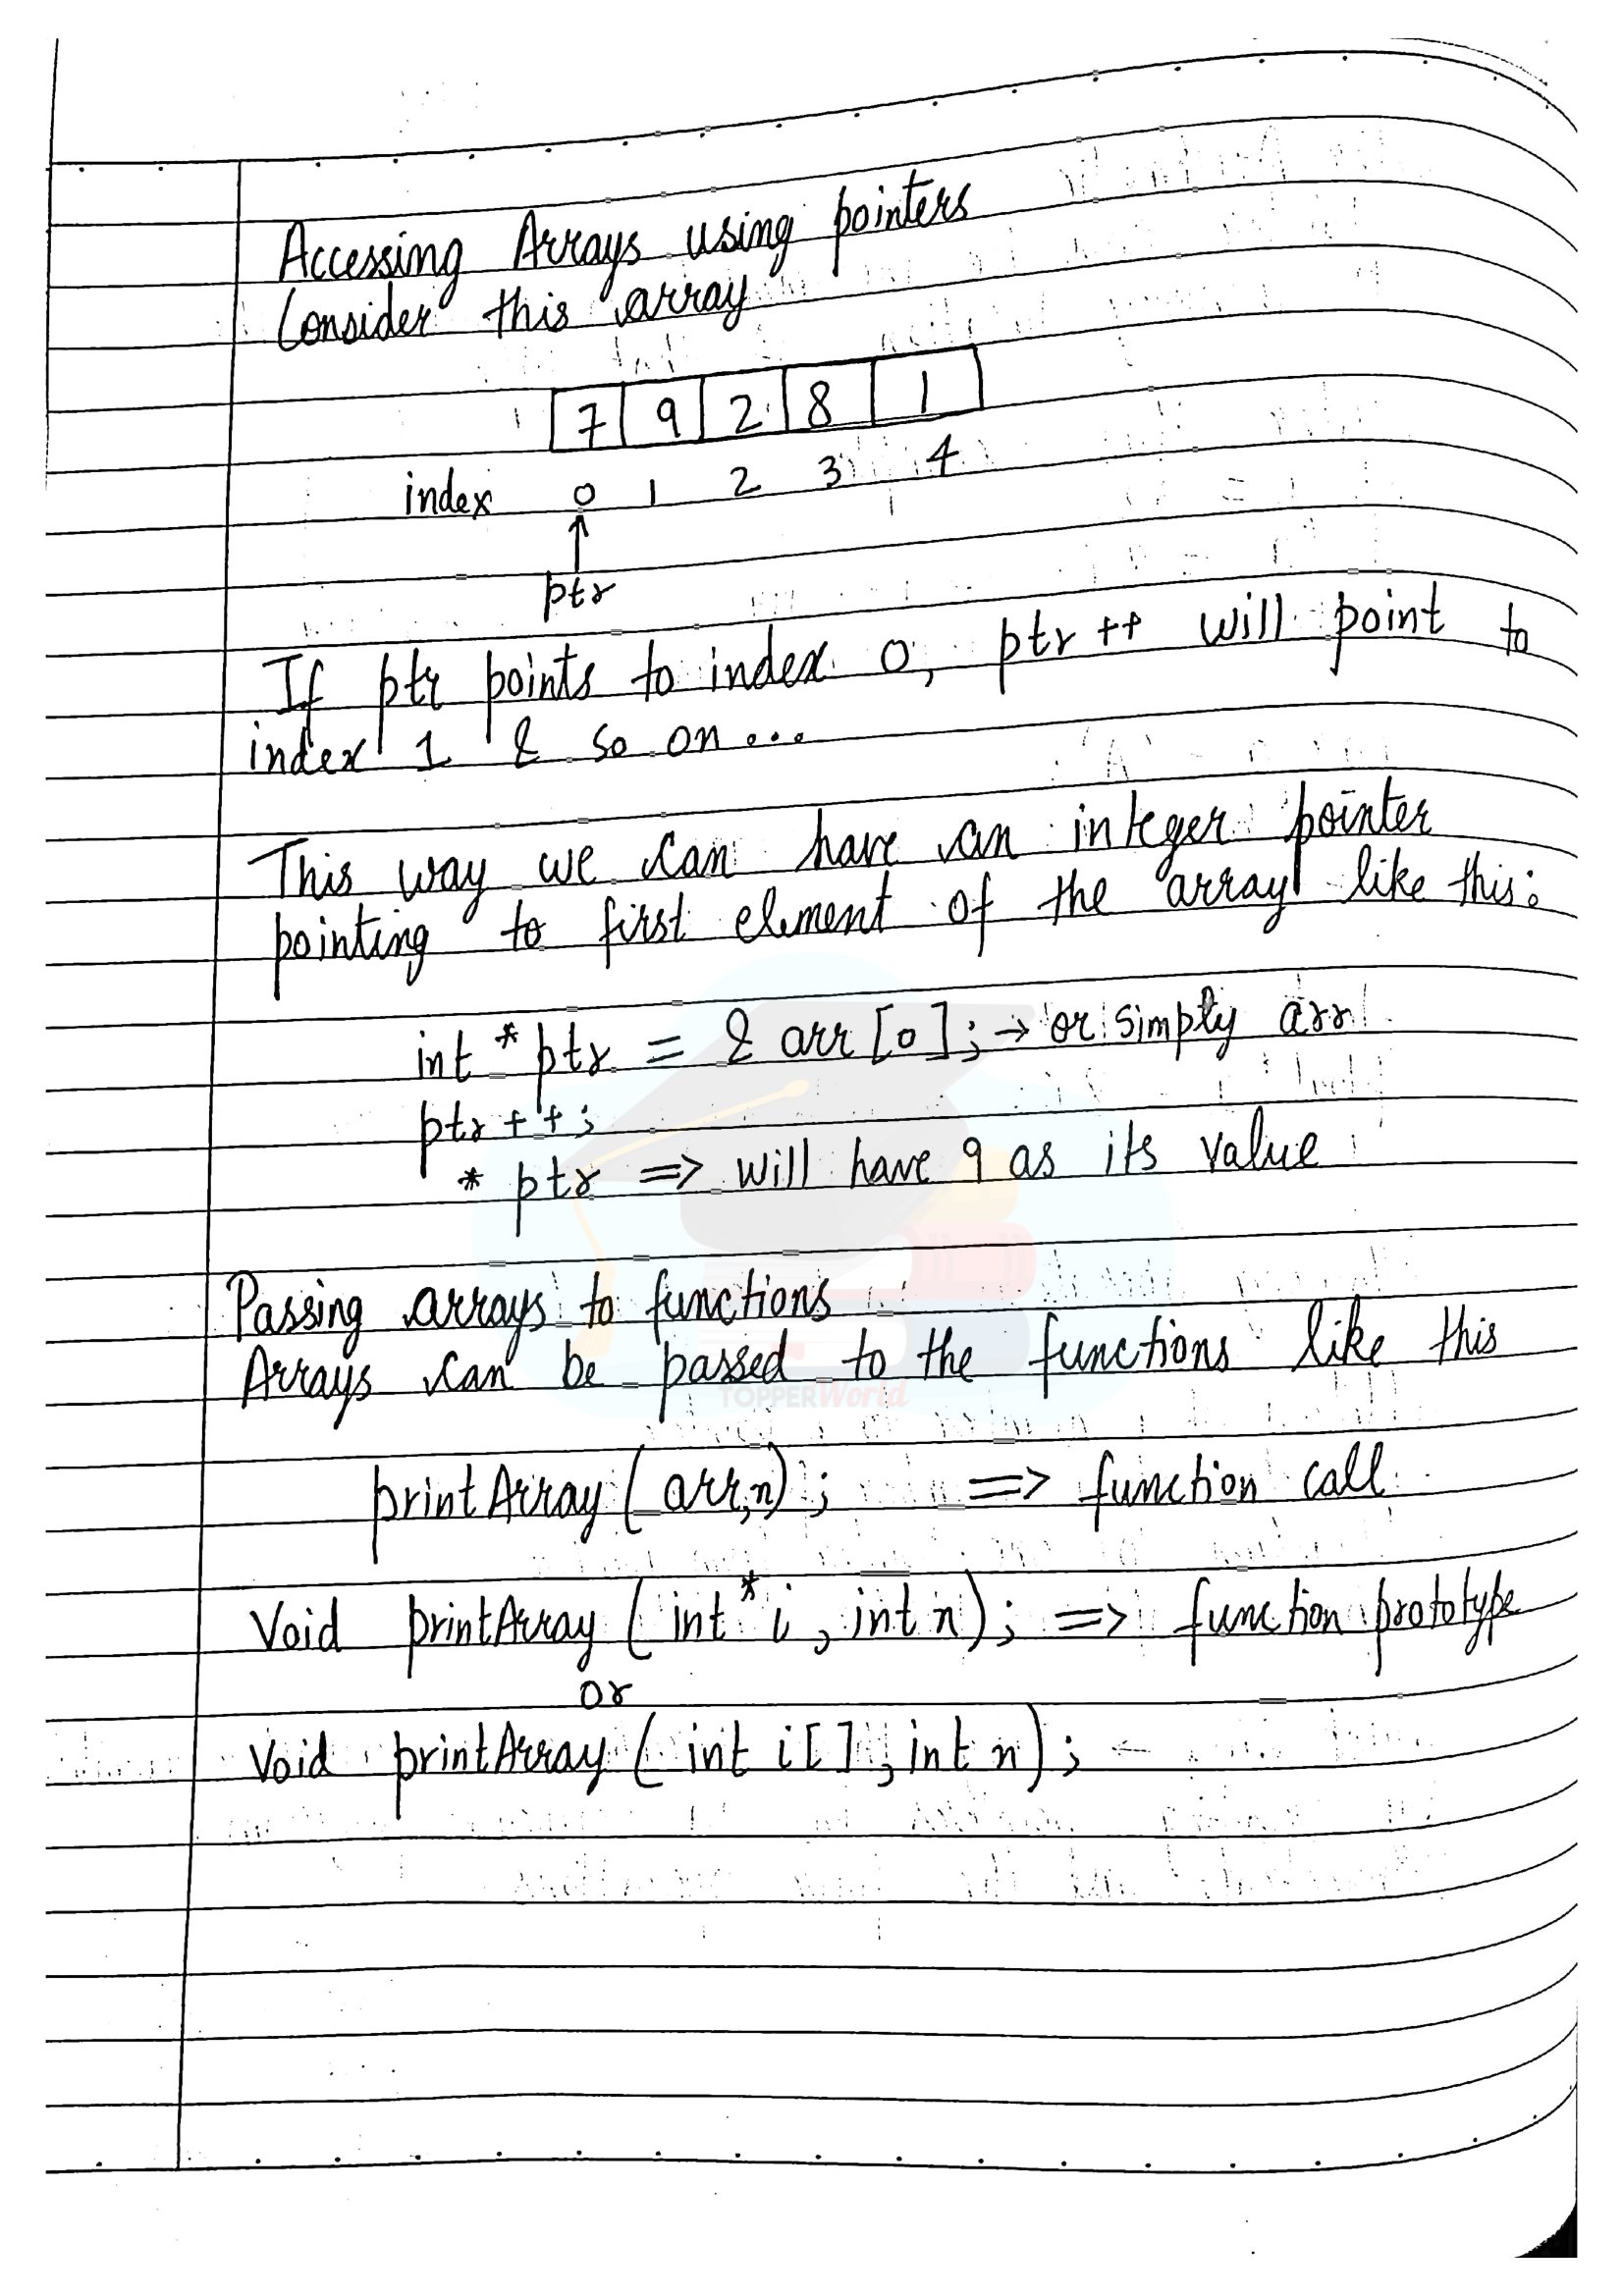 Accessing Arrays using pointers
Consider this array
7 9 2 8 1
index 0 1 2 3 4
ptr
If ptr points to index 0, ptr++ will point to
index 1 & so on...
This way we can have an integer pointer
pointing to first element of the array like this:
int *ptr = & arr[0]; → or simply arr
ptr++;
* ptr => will have 9 as its value
Passing arrays to functions
Arrays can be passed to the functions like this
TOPPERWorld
printArray(arr,n); => function call
Void printArray(int *i, int n); => function prototype
or
Void printArray(int i[], int n);